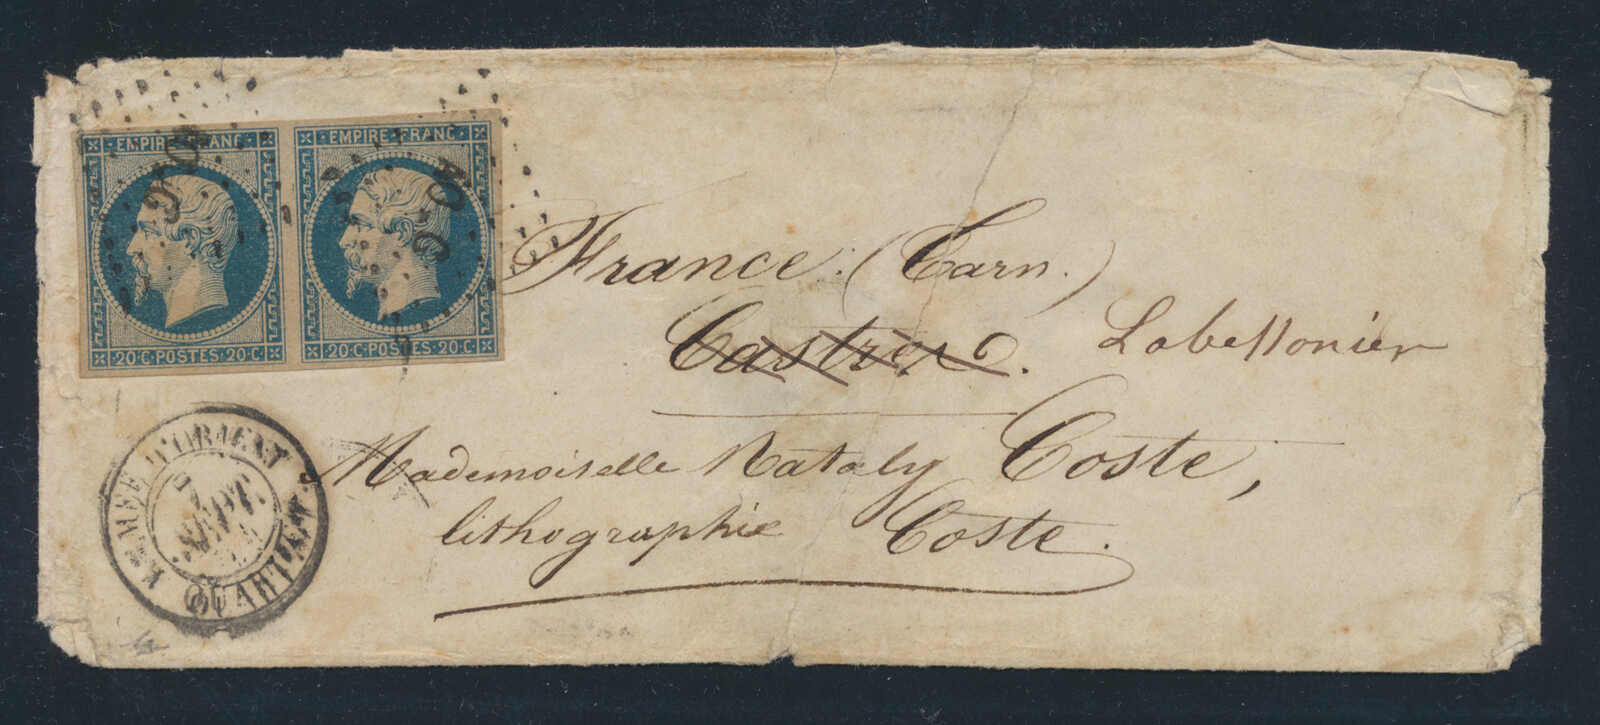 EMPIRE FRANC
20·C·POSTES·20·C·
EMPIRE FRANC
20·C·POSTES·20·C·
France. (Tarn.)
Castres. Labessonier
Mademoiselle Nataly Coste,
lithographie Coste.
D'ORIENT
SEPT.
QUARTIER